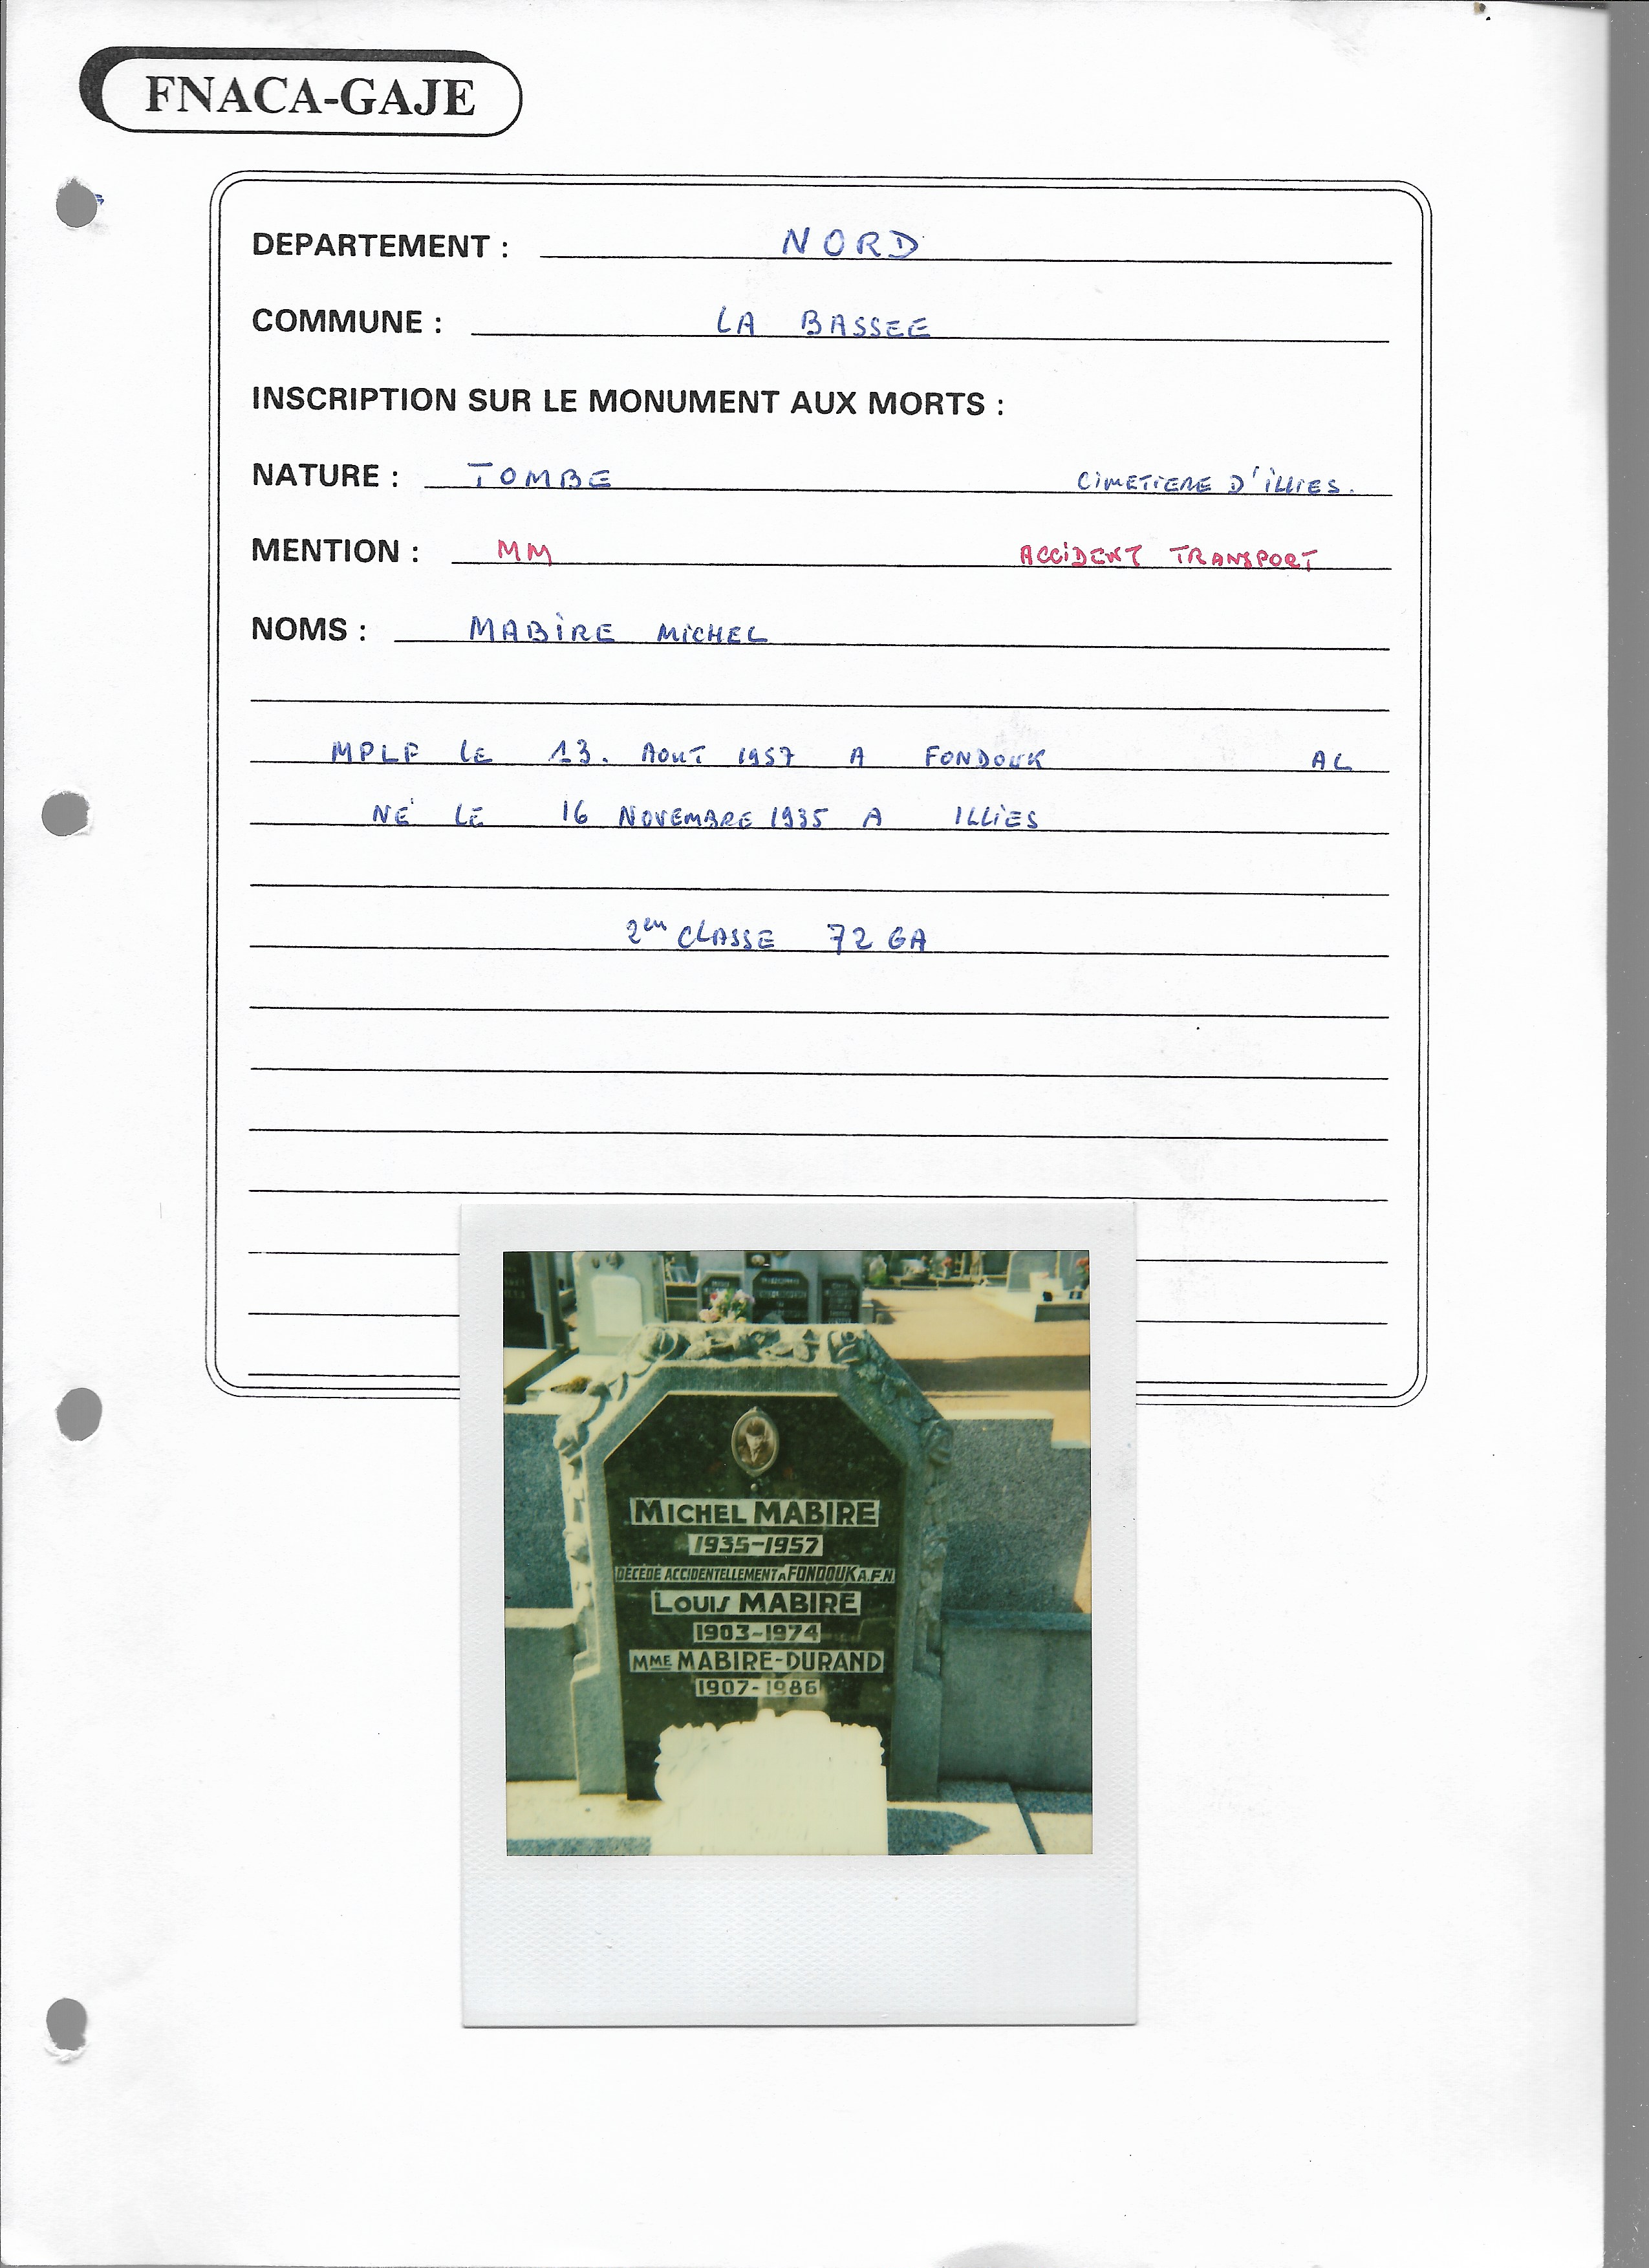 FNACA-GAJE
DEPARTEMENT : NORD
COMMUNE : LA BASSEE
INSCRIPTION SUR LE MONUMENT AUX MORTS :
NATURE : TOMBE CIMETIERE D'ILLIES.
MENTION : MM ACCIDENT TRANSPORT
NOMS : MABIRE MICHEL
MPLF LE 13. AOUT 1957 A FONDOUK AL
NÉ LE 16 NOVEMBRE 1935 A ILLIES
2em CLASSE 72 GA
MICHEL MABIRE
1935-1957
DÉCÉDÉ ACCIDENTELLEMENT A FONDOUK A.F.N.
LOUIS MABIRE
1903-1974
MME MABIRE-DURAND
1907-1986